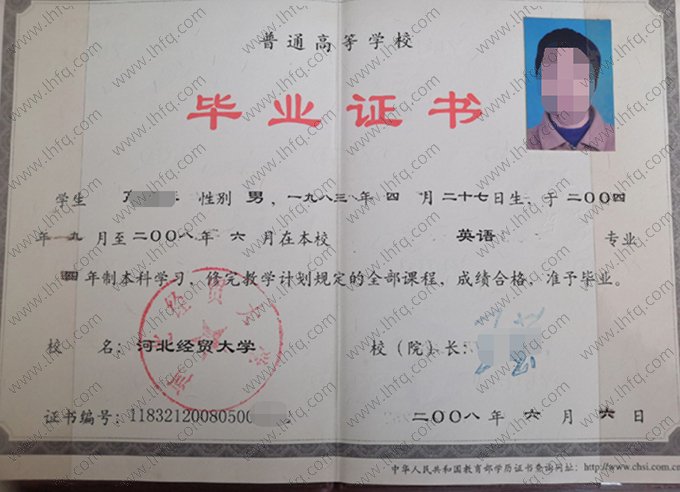 普通高等学校
毕业证书
学生 性别 男，一九八三年 四 月 二十七日生，于 二〇〇四
年 九 月至 二〇〇八年 六 月在本校 英语 专业
四 年制本科学习，修完教学计划规定的全部课程，成绩合格，准予毕业。
校 名：河北经贸大学 校（院）长：
证书编号：11832120080500 二〇〇八 年 六 月 六 日
中华人民共和国教育部学历证书查询网址：http://www.chsi.com.cn
www.lhfq.com